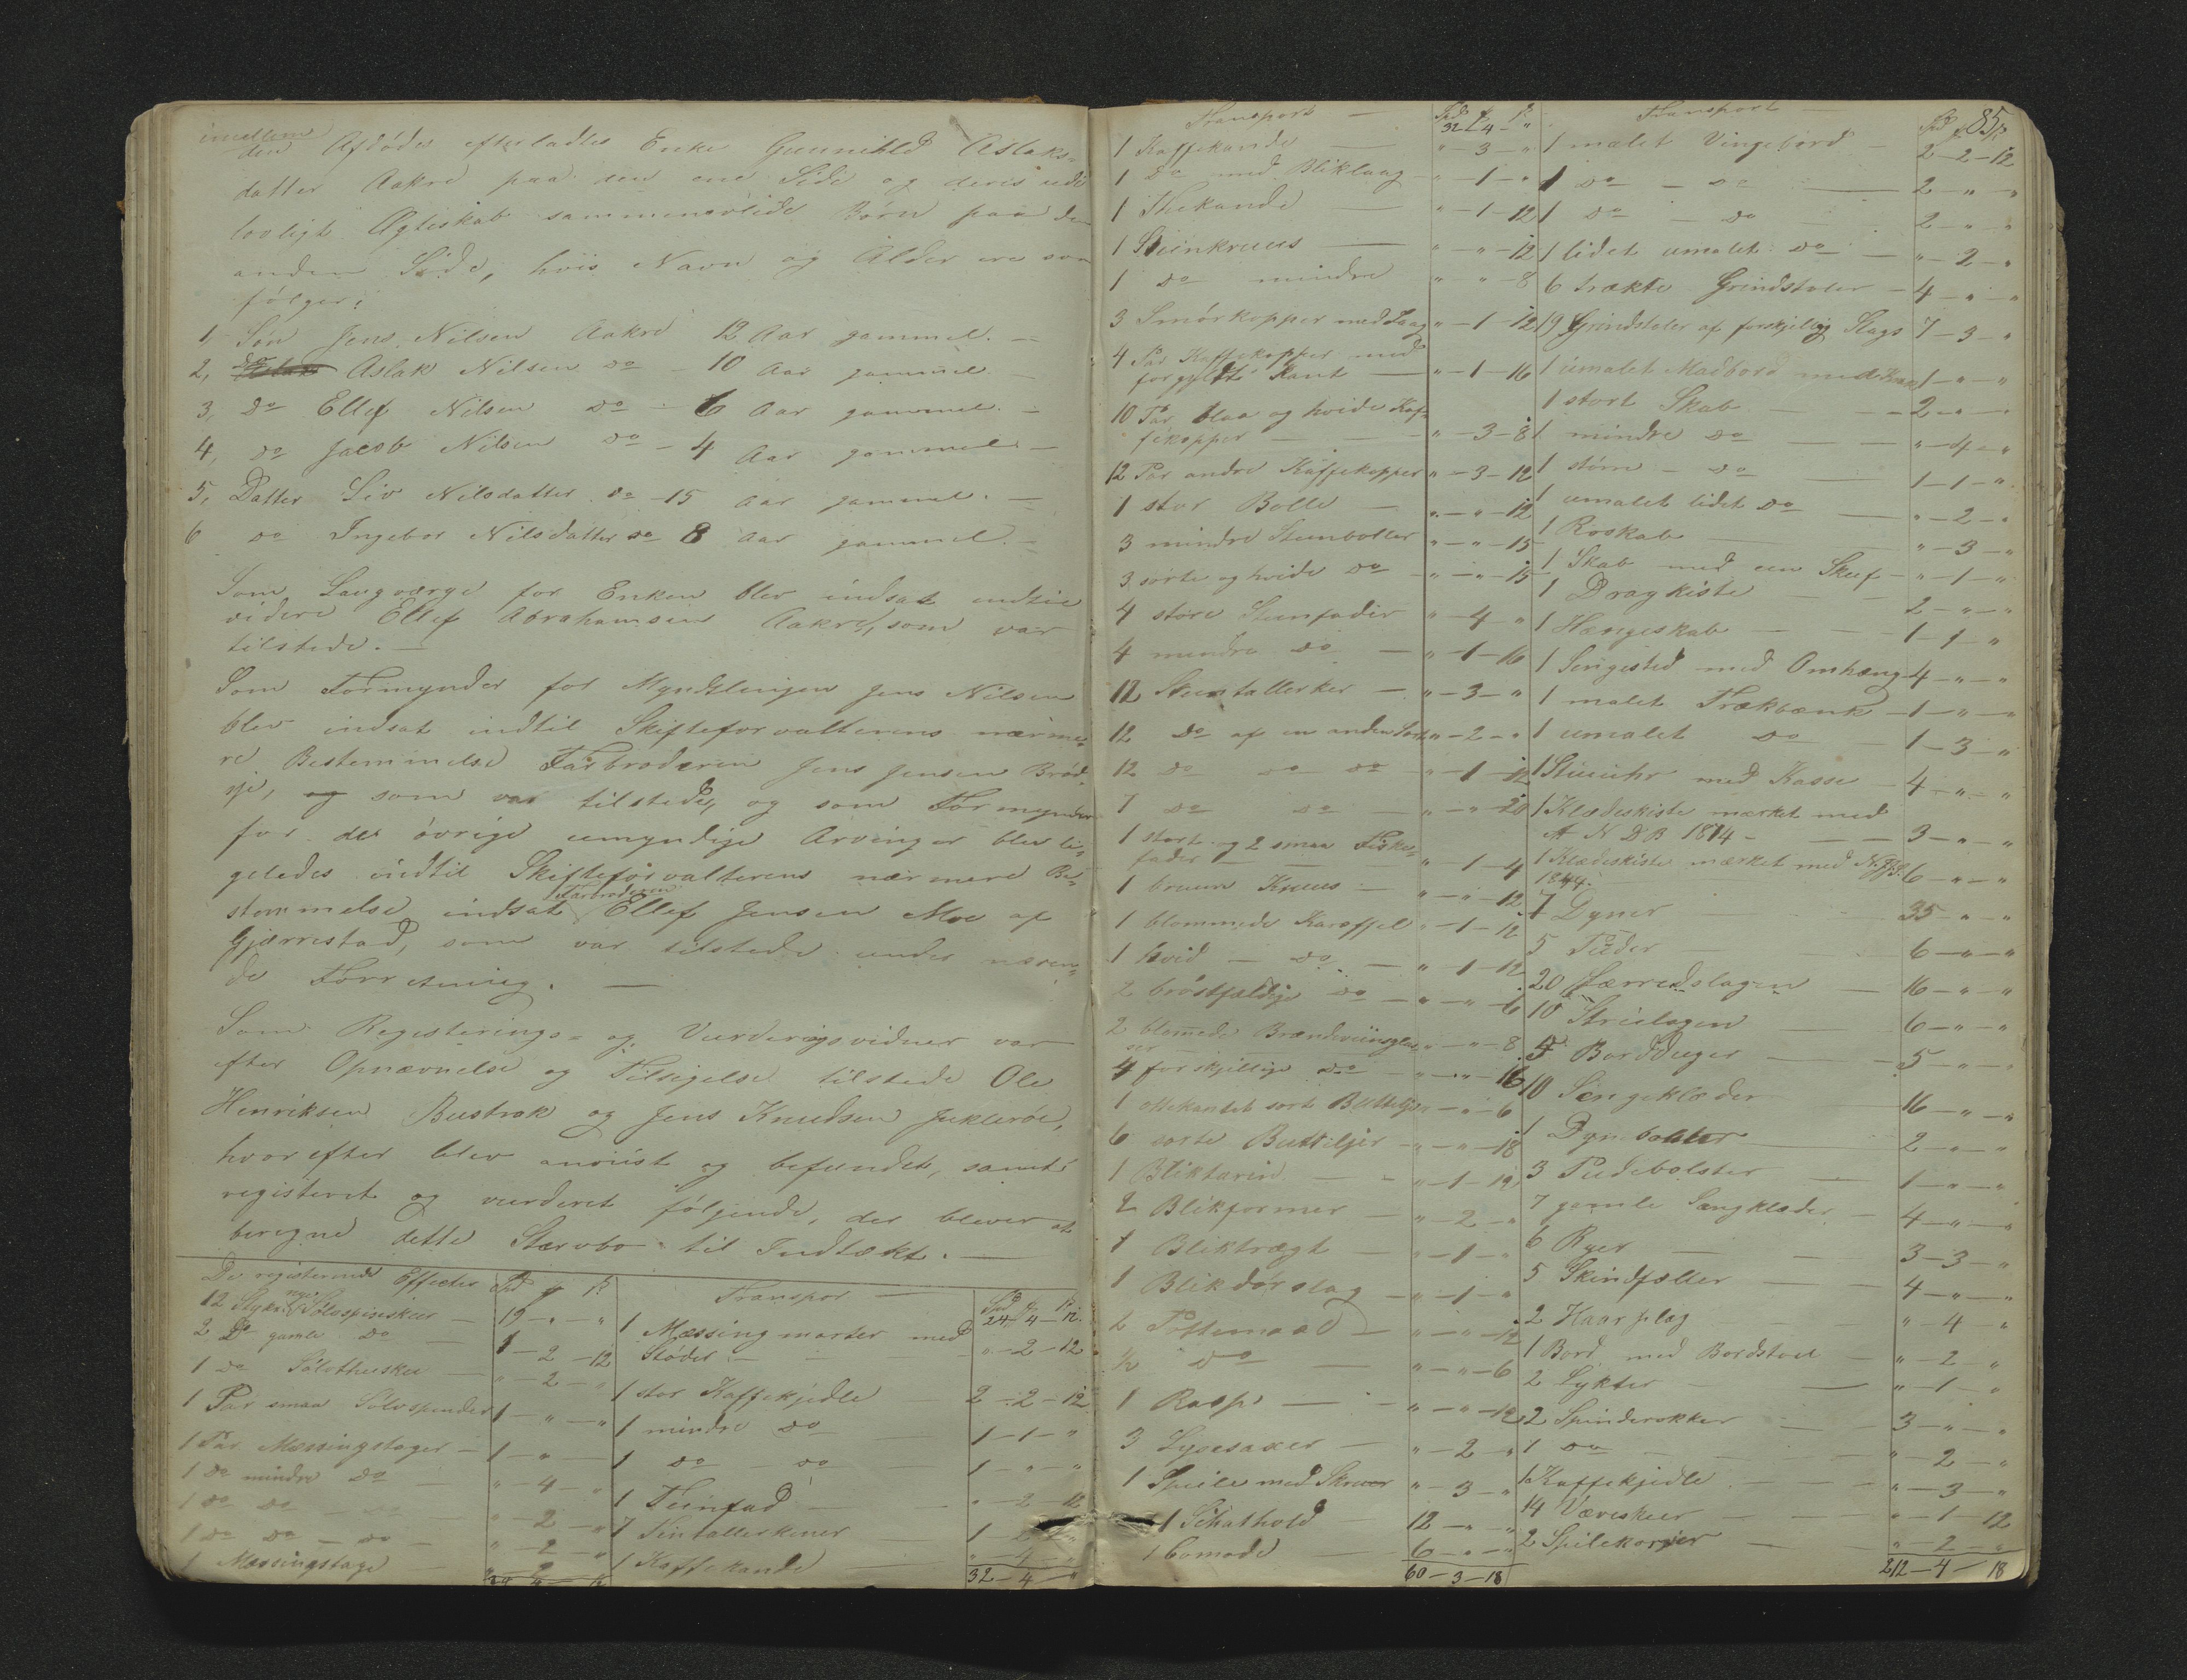 imellem
den Afdødes efterladte Enke Gunnild Aslaks-
datter Aakre paa den ene Side og deres udi
lovligt Ægteskab sammenavlede Børn paa den
anden Side, hvis Navn og Alder ere som
følger:
1, Søn Jens Nilsen Aakre 12 Aar gammel. —
2, do Aslak Nilsen do 10 Aar gammel. —
3, do Ellef Nilsen do - 6 Aar gammel. —
4, do Jacob Nilsen do - 4 Aar gammel. —
5, Datter Liv Nilsdatter do - 15 Aar gammel. —
6 do Ingebor Nilsdatter do 8 Aar gammel. —
Som Laugværge for Enken blev indsat indtil
videre Ellef Abrahamsen Aakre, som var
tilstede. —
Som Formynder for Myndlingen Jens Nilsen
blev indsat indtil Skifteforvalterens nærme-
re Bestemmelse Farbroderen Jens Jensen
som var tilstede, og som Formynder
for de øvrige umyndige Arvinger blev li-
geledes indtil Skifteforvalterens nærmere Be-
stemmelse indsat Farbroderen Ellef Jensen Moe af
Gjærrestad, som var tilstede under næren-
de Forretning. —
Som Registerings- og Vurderingsvidner var
efter Opnævnelse og Tilsigelse tilstede Ole
Henriksen Bustrak og Jens Knudsen
hvorefter blev anviist og befundet, samt
registeret og vurderet følgende, der bliver at
beregne dette Stervbo til Indtækt. —
De registerede Effecter Spd
12 Stykr nye Sølvspiseskeer — 19 - " - "
2 Do gamle do — 1 - 2 - 12
1 do Sølvtheeskee — " - 2 - "
1 Par smaa Sølvspender 1 - " - "
1 Par Messingstager — 1 - " - "
1 do mindre do — " - 4 - "
1 do do — " - 2 - "
1 do do - do — " - 2 - "
1 Messingstage — " - 2 - "
24 - 4 - 12
Transport — Spd 24 - 4 - 12
1 Messing morter med
Støder — " - 2 - 12
1 stor Kaffekjedle 2 - 2 - 12
1 mindre do — 1 - 1 - "
1 do - do 1 - " - "
1 Tiinfad — " - 2 - 12
7 Tintallerkener
1 Kaffekande — " - 4 - "
32 - 4 - "
85
Transport — Spd 32 - 4 - "
1 Kaffekande — " - 3 - "
1 Do med Bliklaag — " - 1 - "
1 Thekande — " - 1 - 12
1 Steenkruus — " - " - 12
1 do mindre " - " - 8
3 Smørkopper med Laag " - 1 - 12
4 Par Kaffekopper med
forgyldte Kant — " - 1 - 16
10 Par blaa og hvide Kaf-
fekopper — " - 3 - 8
12 Par andre Kaffekopper " - 3 - 12
1 stor Bolle — " - " - 12
3 mindre Steenboller " - " - 15
3 sorte og hvide do " - " - 15
4 store Steenfader " - 4 - "
4 mindre do — " - 1 - 16
12 Steentallerker — " - 3 - "
12 Do af en anden Sort " - 2 - "
12 do do do — " - 1 - 12
7 do do — " - " - 20
1 stort og 2 smaa Fiske-
fader — " - 1 - 4
1 bruun Kruus — " - " - 12
1 blommede Karaffel " - 1 - 12
1 hvid - do — " - 1 - 12
2 brøstfældige do — " - " - 6
2 blomede Brændeviinsglas-
ser " - " - 8
4 forskjellige do — " - " - 16
1 ottekantet sort Buttelje " - " - 6
6 sorte Butteljer — " - " - 18
1 — " - 1 - 12
2 Blikformer — " - 2 - "
1 Bliktragt — " - 1 - "
1 Blikdørslag — " - 1 - "
2 Pottemaad — " - " - 12
1/2 do — " - " - 6
1 Rasp — " - " - 12
3 Lysesaxer — " - 2 - "
1 Speile med Skuer " - 3 - "
1 Schathold — 12 - " - "
1 Comode — 6 - " - "
60 - 3 - 18
Transport — Spd
1 malet Vingebord — 2 - 2 - 12
1 Do - do — 2 - " - "
1 do - do — 2 - " - "
1 lidet umalet do — " - 2 - "
6 trækte Grindstoler — 4 - " - "
19 Grindstoler af forskjellig Slags 7 - 3 - "
1 umalet Madbord med 1 - " - "
1 stort Skab — 2 - " - "
1 mindre do — " - 4 - "
1 større - do — 1 - 1 - "
1 umalet lidet do — " - 2 - "
1 Roskab — " - 3 - "
1 Skab med een Skuf — " - 1 - "
1 Dragkiste — 2 - " - "
1 Hængeskab — 1 - 1 - "
1 Sengested med Omhæng 4 - " - "
1 malet Trækbænk — 1 - " - "
1 umalet do — 1 - 3 - "
1 Stueuhr med Kasse — 4 - " - "
1 Klædeskiste mærket med
A N D B 1814 — 3 - " - "
1 Klædeskiste mærket med
1844. — 6 - " - "
7 Dyner 35 - " - "
5 Puder — 6 - " - "
20 Lærredslagen — 16 - " - "
10 Strielagen — 6 - " - "
5 Bordduger — 5 - " - "
10 Sengeklæder 16 - " - "
1 Dynebolster 2 - " - "
3 Pudebolster — 1 - " - "
7 gamle Sengklæder — 4 - " - "
6 Ryer — 3 - 3 - "
5 Skindfæller — 4 - " - "
2 Haarplag — " - 4 - "
1 Bord med Bordstoel — " - 2 - "
2 Lykter — " - 1 - "
2 Spinderokker — 3 - " - "
1 do — " - 2 - "
1 Kaffekjedle — " - 3 - "
14 Væveskeer — " - 1 - 12
2 Spilekorjer — " - 2 - "
212 - 4 - 18